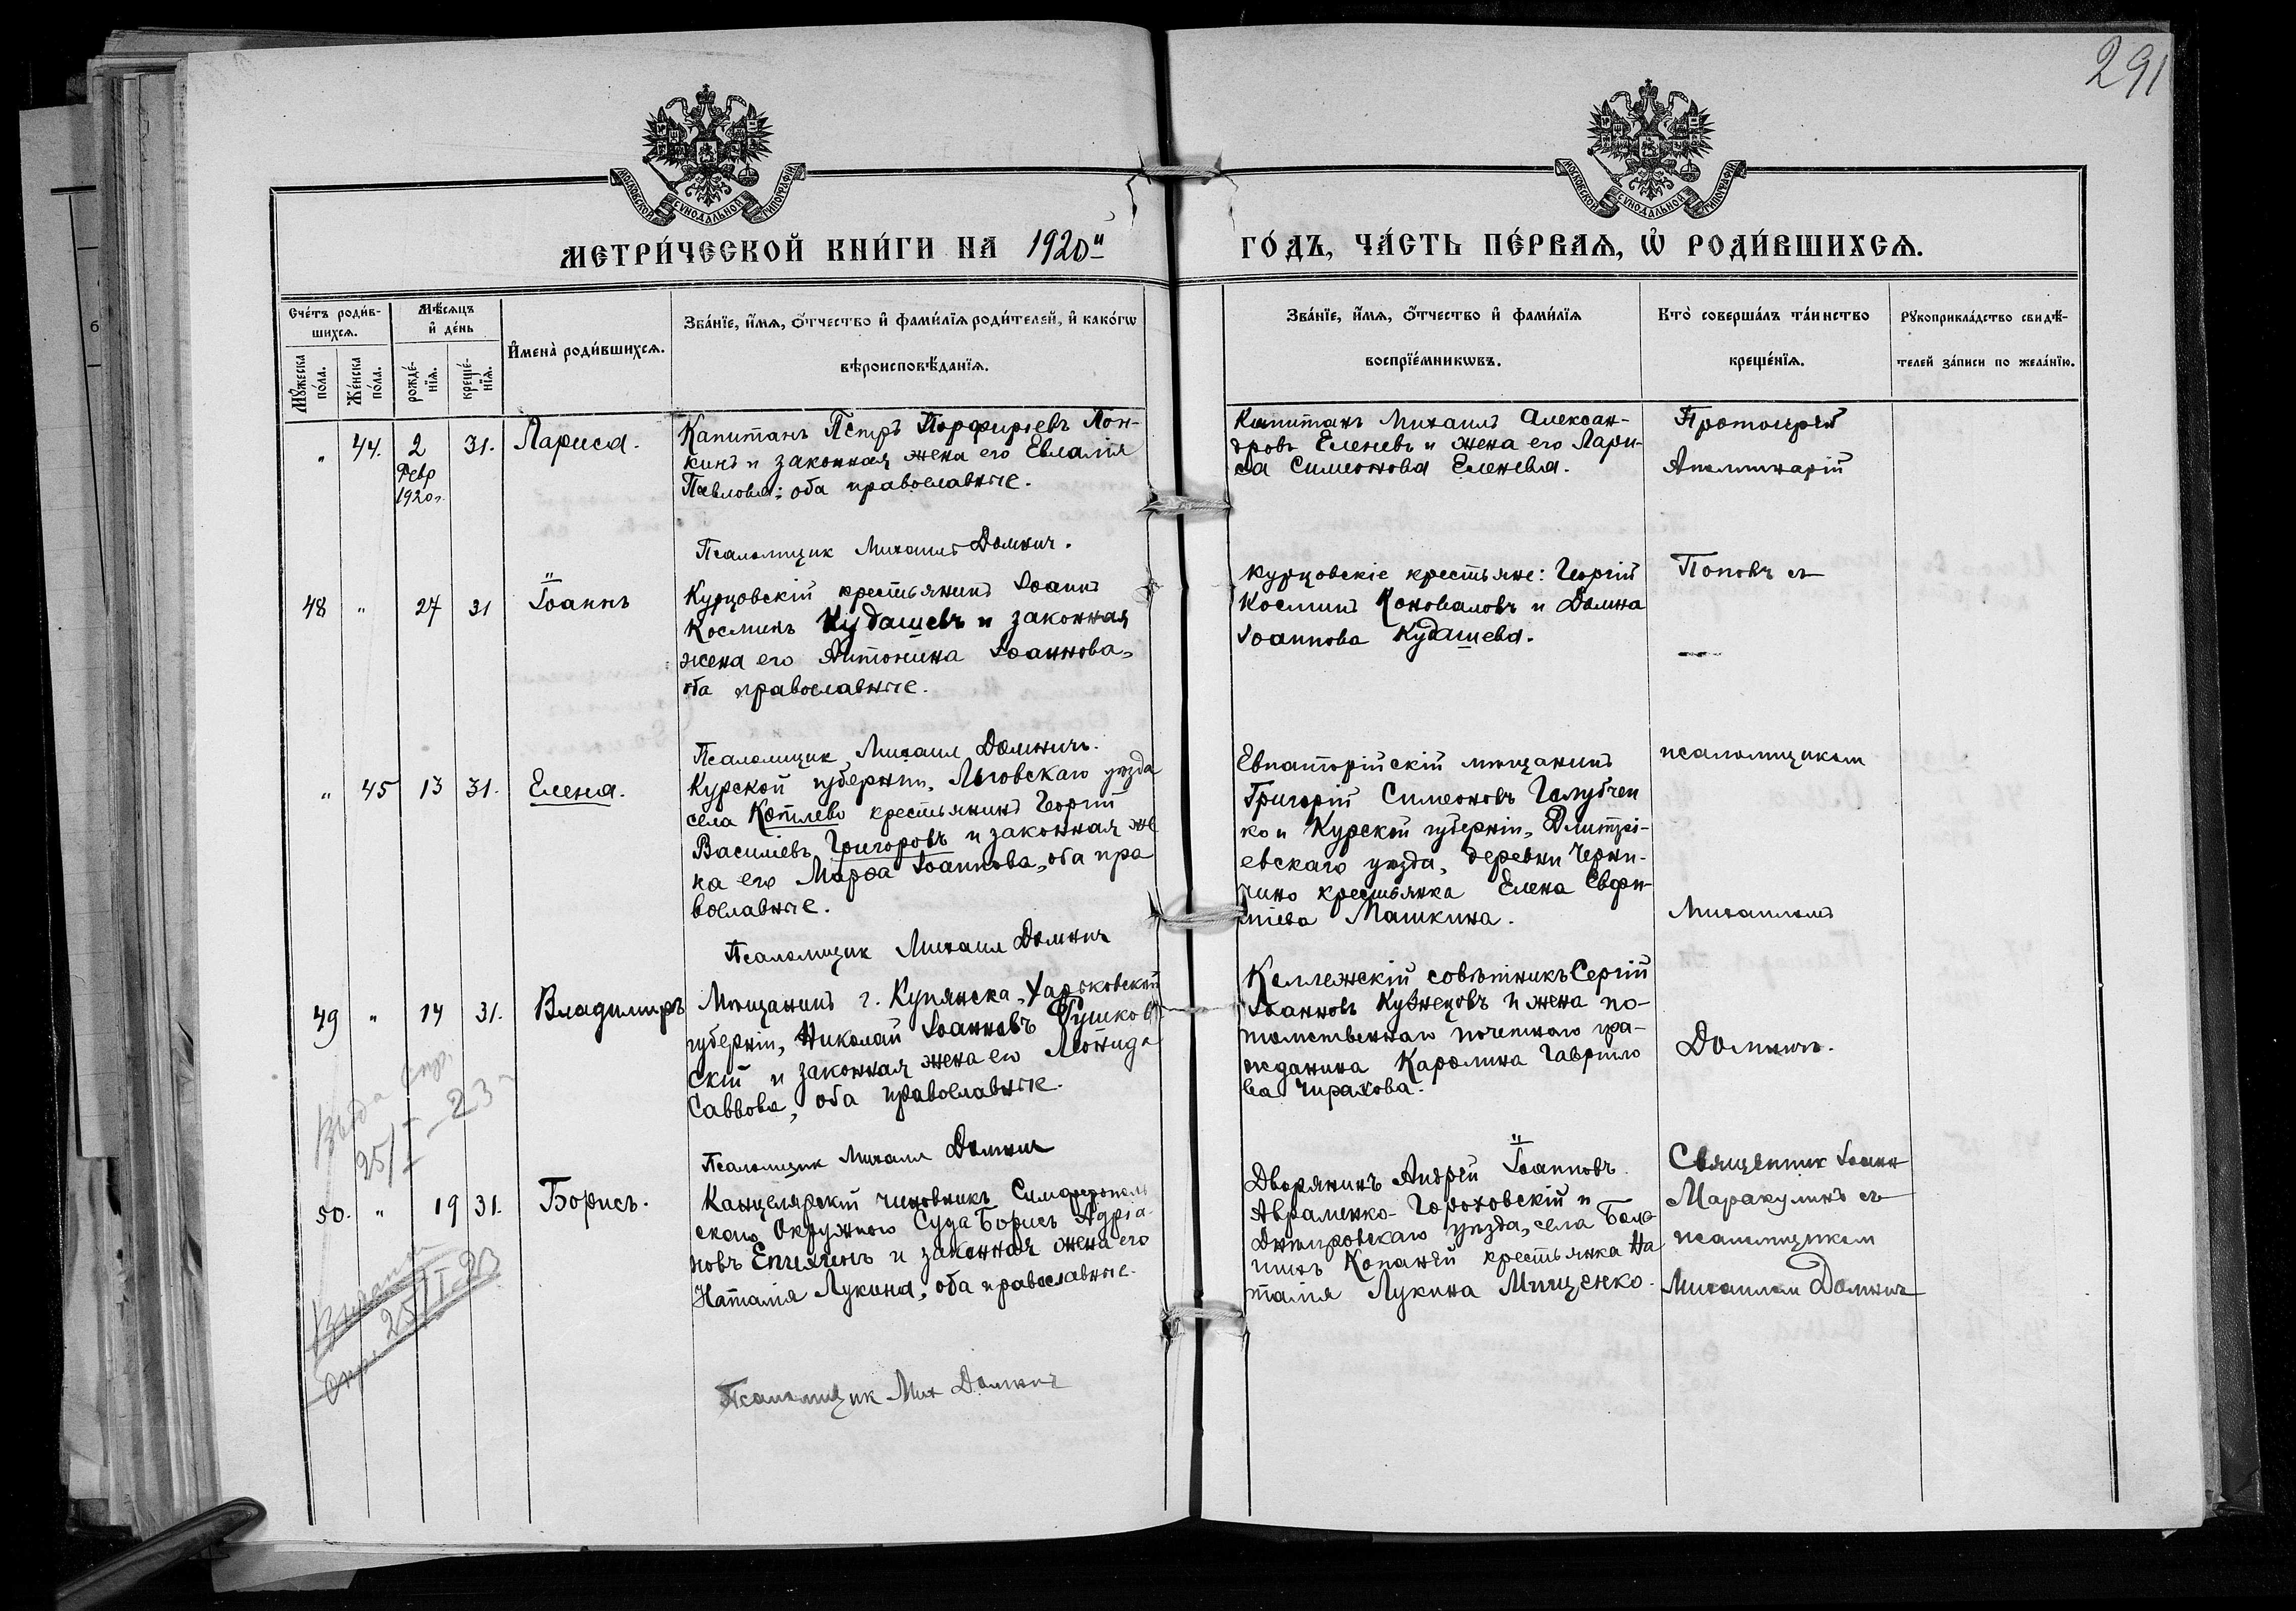 291
МОСКОВСКОЙ СѴНОДАЛЬНОЙ ТИПОГРАФІИ
МОСКОВСКОЙ СѴНОДАЛЬНОЙ ТИПОГРАФІИ
МЕТРИ́ЧЕСКОЙ КНИ́ГИ НА 1920й
ГО́ДЪ, ЧА́СТЬ ПЕ́РВАѦ, Ѡ҆ РОДИ́ВШИХСѦ.
Сче́тъ роди́в-
шихсѧ.
Мꙋ́жеска по́ла.
Же́нска по́ла.
Мѣ́сѧцъ
и҆ де́нь
рожде́-
нїѧ.
креще́-
нїѧ.
И҆мена̀ роди́вшихсѧ.
Зва́нїе, и҆́мѧ, ѻ҆́тчество и҆ фами́лїѧ роди́телей, и҆ како́гѡ
вѣроисповѣ́данїѧ.
Зва́нїе, и҆́мѧ, ѻ҆́тчество и҆ фами́лїѧ
воспрїе́мникѡвъ.
Кто̀ соверша́лъ та́инство
креще́нїѧ.
Рꙋкоприкла́дство свидѣ́-
телей за́писи по жела́нїю.
" 44. 2 31. Лариса.
Февр
1920г.
Капитанъ Петръ Порфирьевъ Лон-
кинъ и законная жена его Евлалія
Павлова; оба православные.
Псаломщик Михаилъ Домнич.
Капитанъ Михаилъ Алексан-
дровъ Еленевъ и жена его Лари-
са Симеонова Еленева.
Протоиерей
Аполлинарій
48 " 27 31 Іоаннъ
Курцовскій крестьянинъ Іоаннъ
Косминъ Кудашевъ и законная
жена его Антонина Іоаннова,
оба православные.
Псаломщик Михаил Домничъ.
Курцовскіе крестьяне: Георгій
Косминъ Коноваловъ и Домна
Іоаннова Кудашева.
Поповъ съ
" 45 13 31. Елена.
Курской губерніи, Льговскаго уѣзда
села Коттлево крестьянинъ Георгій
Василіевъ Григоровъ и законная же
на его Марѳа Іоаннова, оба пра
вославные.
Псаломщик Михаил Домнич
Евпаторійскій мѣщанинъ
Григорій Симеоновъ Голубчен
ко и Курской губерніи, Дмитрі-
евскаго уѣзда, деревни Черни-
чино крестьянка Елена Евфи-
міева Машкина.
псаломщиком
Михаиломъ
49 " 14 31. Владимиръ
Мѣщанинъ г. Купянска, Харьковской
губерніи, Николай Іоанновъ Глушков
скій и законная жена его Леонида
Саввова, оба православные.
Псаломщик Михаил Домнич
Коллежскій совѣтникъ Сергій
Іоанновъ Кузнецовъ и жена по-
томственнаго почетнаго гра-
жданина Каролина Гаврило
ва Чиракова.
Домничъ.
Выда спр.
25/I-23г
50. " 19 31. Борисъ.
Канцелярскій чиновникъ Симферополь
скаго Окружного Суда Борисъ Адріа-
новъ Епинянъ и законная жена его
Наталія Лукина, оба православные.
Псаломщик Мих Домнич
Дворянинъ Андрей Іоанновъ
Авраменко-Гороховскій и
Днѣпровскаго уѣзда, села Боль
шихъ Копаней крестьянка На
талія Лукина Мищенко.
Священник Іоанн
Маракулинъ съ
псаломщиком
Михаилом Домнич
25/I-23